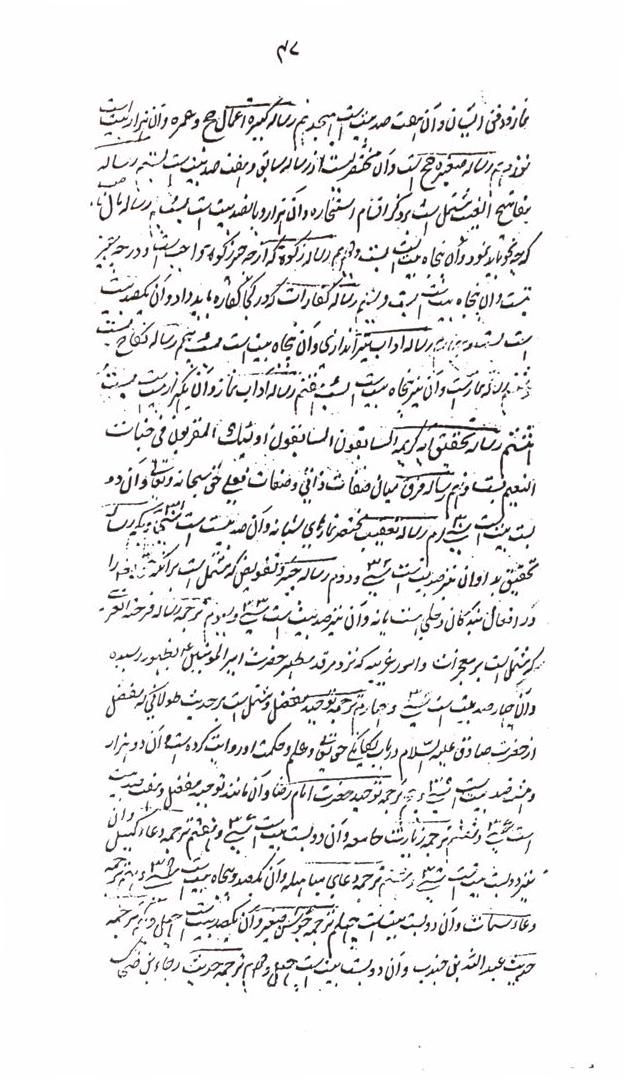 ۴۷
و آن هفت صد بیت است هیجدهم رساله کبیره اعمال حج و عمره و آن هزار بیت است
نوزدهم رساله صغیره حج است و آن مختصر است از رساله سابق و هفت صد بیت است بیستم رساله
مفاتیح الغیب مشتمل است بر ذکر اقسام استخاره و آن هزار و پانصد بیت است رساله مال
که چه نحو باید نمود و آن پنجاه بیت است بیست و رساله زکوة که از چه چیز زکوة واجب است و در چه چیز
نیست و آن پنجاه بیت است بیست و رساله کفارات که در کجا کفاره باید داد و آن یکصد بیت
است بیست و رساله آداب تیر اندازی و آن پنجاه بیت است بیست و پنجم رساله
و آن نیز پنجاه بیت است بیست و هفتم رساله آداب نماز و آن یکهزار بیت است بیست
هشتم رساله تحقیق آیه کریمه السابقون السابقون اولئك المقربون فی جنات
النعیم بیست و نهم رساله فرق میان صفات ذاتی و صفات فعلی حق سبحانه و تعالی و آن دو
بیست بیت است رساله تعقیب مختصر نمازهای شبانه و آن صد بیت است سی و یکم رساله
تحقیق بدا و آن نیز صد بیت است سی و دوم رساله جبر و تفویض که مشتمل است بر آنکه خدا را
در افعال بندگان دخلی است یا نه و آن نیز صد بیت است سی و سیوم ترجمه رساله فرحة الغری
که مشتمل است بر معجزات و امور غریبه که نزد مرقد مطهر حضرت امیر المومنین بظهور رسیده
و آن چهار صد بیت است سی و چهارم ترجمه توحید مفضل و مشتمل است بر حدیث طولانی که مفضل
از حضرت صادق علیه السلام در باب یکانگی حق تعالی و علم و حکمت او روایت کرده است و آن دو هزار
و هشتصد بیت است سی و پنجم ترجمه توحید حضرت امام رضا و آن مانند توحید مفضل و هفت صد بیت
است سی و ششم ترجمه زیارت جامعه و آن دویست بیت است سی و هفتم ترجمه دعاء کمیل و آن
نیز دویست بیت است سی و هشتم ترجمه دعای مباهله و آن یکصد و پنجاه بیت است سی و نهم ترجمه
دعاء سمات و آن دویست بیت است چهلم ترجمه جوشن صغیر و آن یکصد بیت است چهل و یکم ترجمه
حدیث عبد الله بن جندب و آن دویست بیت است چهل و دوم ترجمه حدیث رجاء بن ضحاک